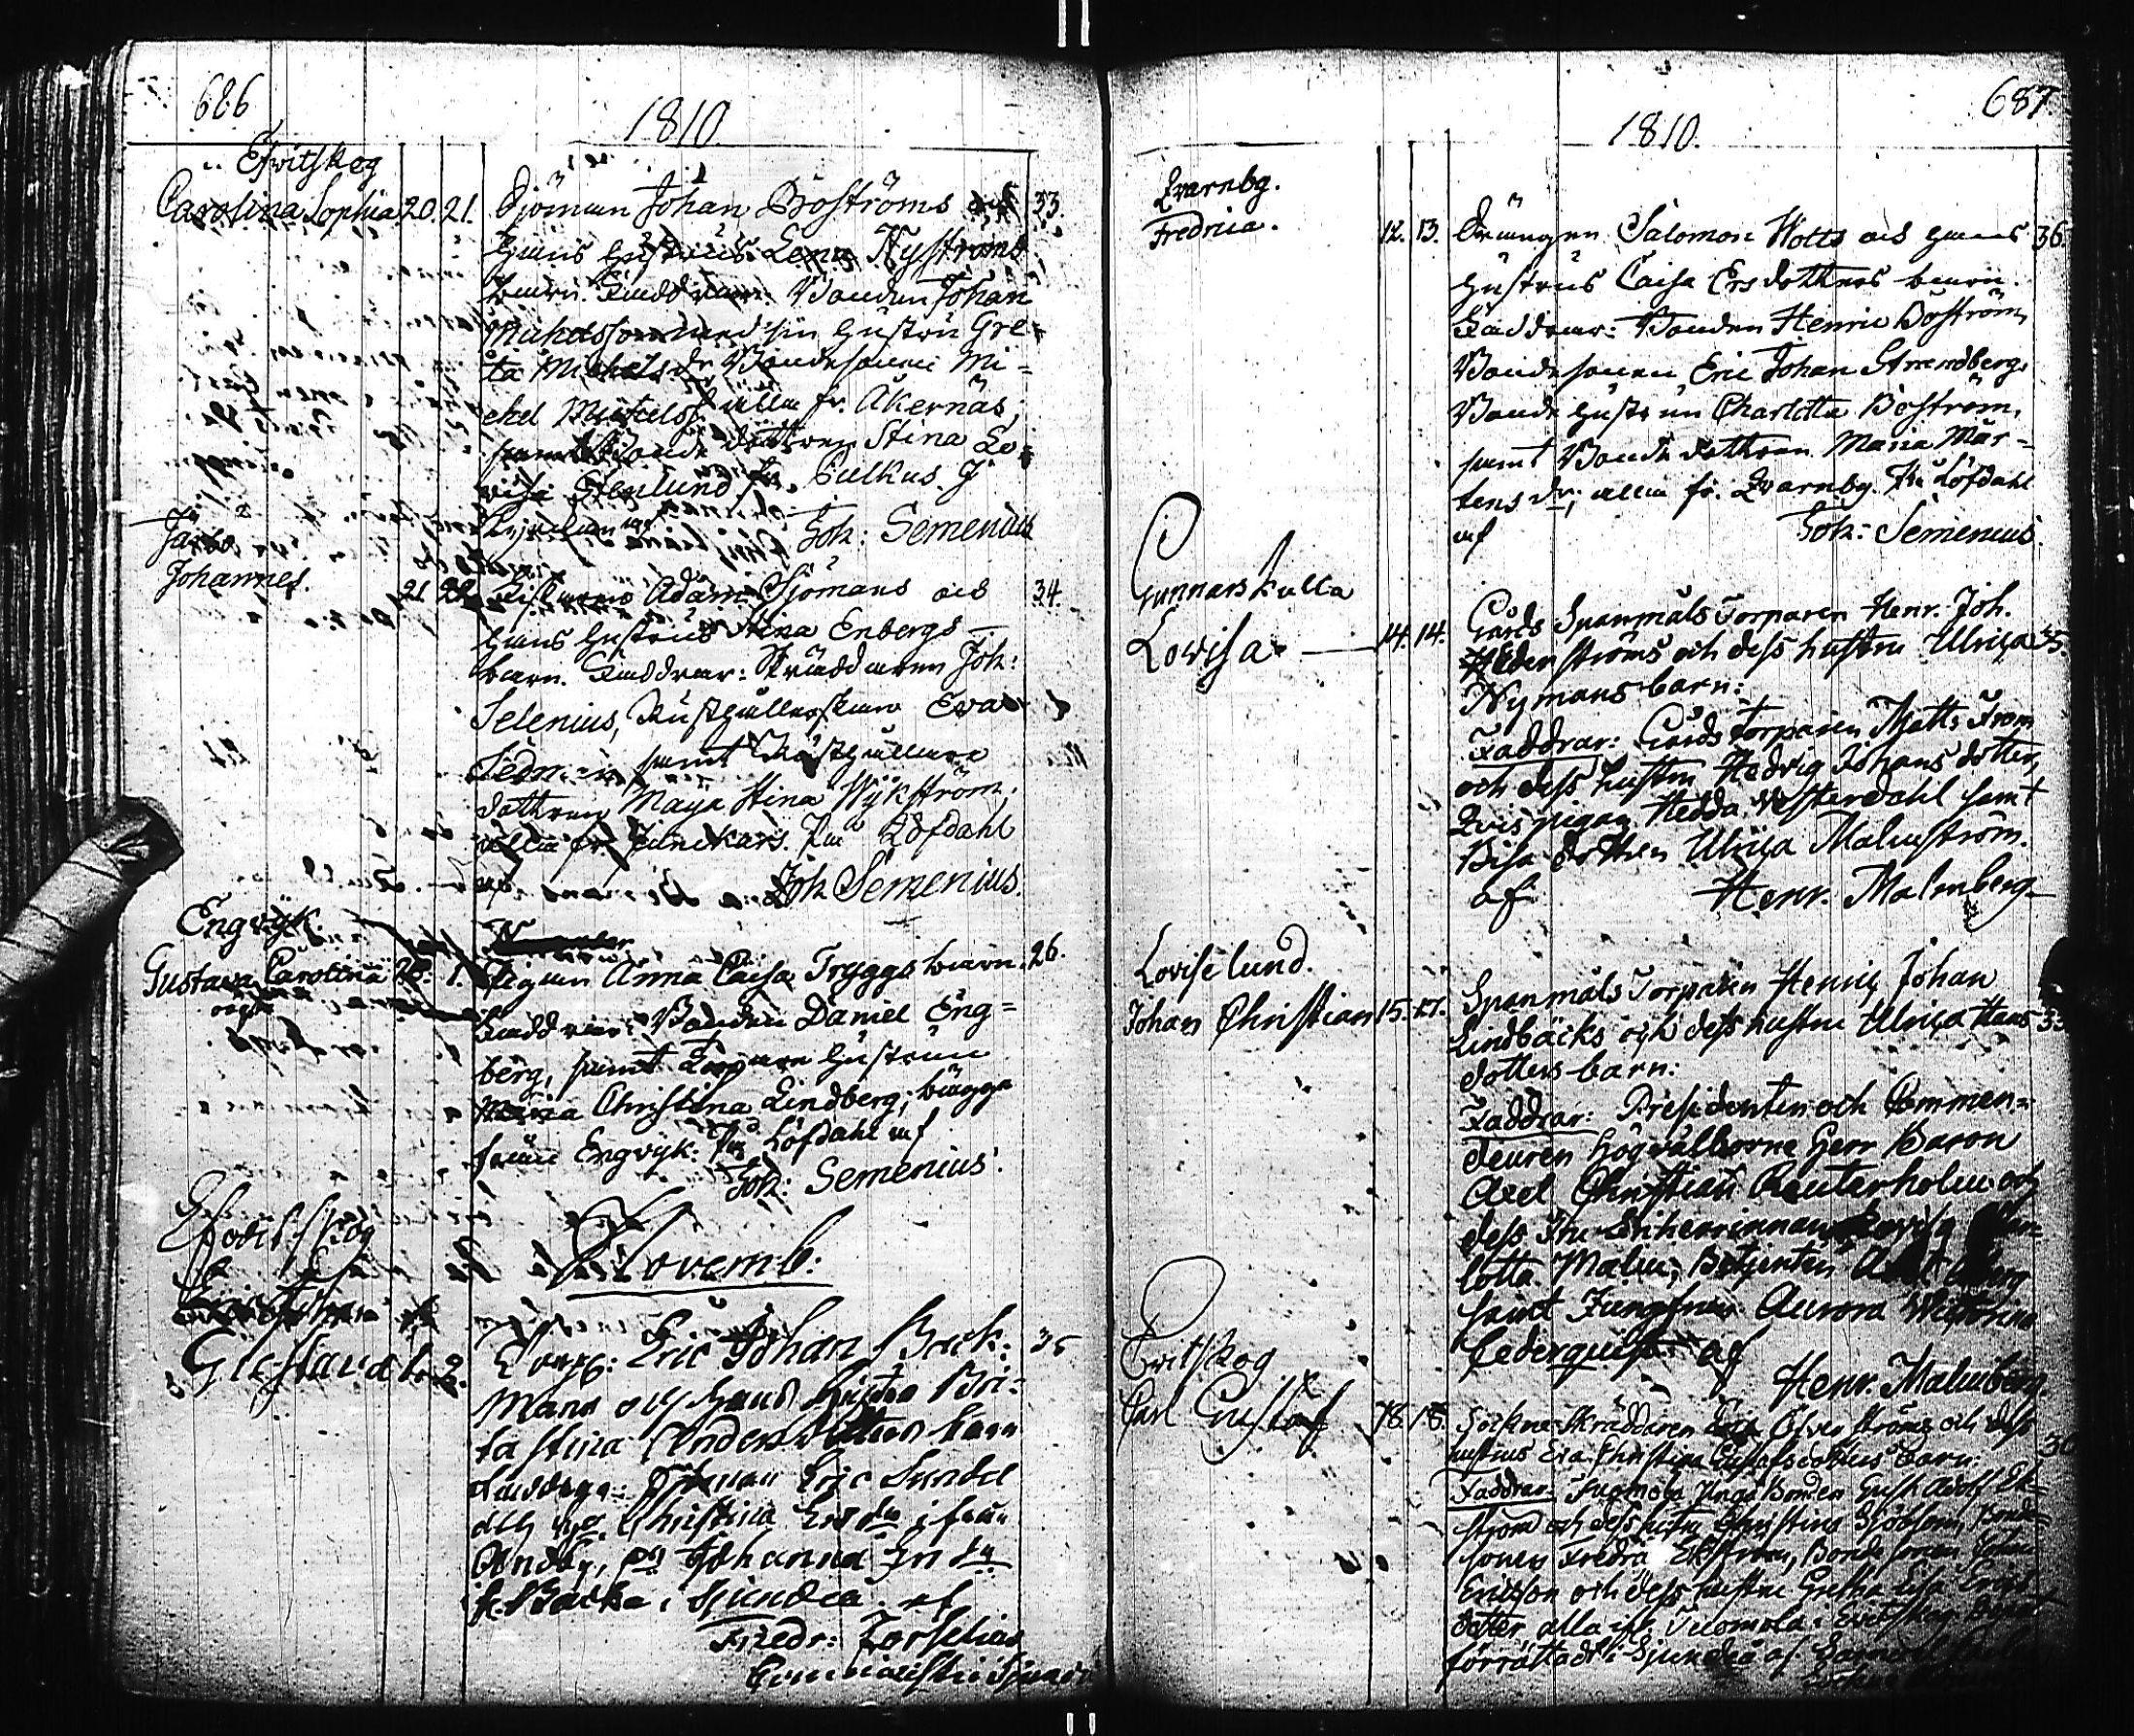 686
1810.
Evitskog
Carolina Sophia 20. 21. Sjöman Johan Boströms och 33.
hans hustrus Lena Nyströms
barn. Faddrar: Bonden Johan
Michelsson med sin hustru Gre=
ta Michelsdr Bondesonen Mi=
chel Michelss. alla fr. Åkernäs;
samt Bonde dottren Stina Lo=
visa Stenlund fr. Pulkus.
Joh: Semenius
Johannes. 21 22 Adam Sjömans och 34.
hans hustrus Stina Enbergs
barn. Faddrar: Skräddaren Joh:
Selenius, Rusthållerskan Eva
samt Rusthållare
dottren Maja Stina Wykström;
alla fr. Löfdahl
af Joh Semenius.
Engvyk.
Gustava Carolina 28. 1. Pigan Anna Caisa Tryggs barn. 26.
oägta
Faddrar: Bonden Daniel Eng=
berg, samt hustrun
Maria Christina Lindberg; bägge
från Engvyk. Löfdahl af
Joh: Semenius.
Novemb:
Gustava 1. 2. Torp: Eric Johan Back= 35
mans och hans hustru Bri=
ta Stina Anders dotters barn
Faddrar: Eric Sundel
och Christina Ersdr ifrån
Andby, Johanna
fr. Backa i Sjundeå. af
Fredr: Forselius
687.
1810.
Qvarnbg.
Fredrica. 12. 13. Drängen Salomon Holts och hans 36.
hustrus Caisa Ersdotters barn.
Faddrar: Bonden Henric Boström,
Bondesonen Eric Johan Strandberg,
Bonde hustrun Charlotta Boström,
samt Bonde dottren Maria Mår=
tens dr; alla fr. Qvarnbg. Löfdahl
af Joh: Semenius.
Gunnarskulla
Lovisa 14. 14. Gårds Spanmåls Torparen Henr. Joh.
Hedenströms och dess hustru Ulrica 35
Nymans barn:
Faddrar: Gårds Torparen Matts From
och dess hustru Hedvig Johans dotter,
pigan Hedda Westerdahl samt
dottren Ulrica Malmström.
af Henr. Malmberg
Loviselund.
Johan Christian 15. 17. Spanmåls Torparen Henric Johan
Lindbäcks och dess hustru Ulrica Hans 33
dotters barn:
Faddrar: Presidenten och Commen=
deuren Högvälborne Herr Baron
Axel Christian Reuterholm och
dess Fru Friherrinnan
lotta Malm, Betjenten
samt Jungfrun Aurora
Cederquist af
Henr. Malmberg.
Evitskog
Carl Gustaf 18. 18. Sockne Skräddaren Öfverströms och dess
hustrus Eva Christina Gustafsdotters barn. 30
Faddrar: Bonden Gust. Adolf Ek=
ström och dess hustru Christina Sjöblom, Bonde=
sonen Fredric Ekström, Bonde sonen Johan
Ericsson och dess hustru Greta Lisa Erics
dotter alla ifr. Tuomola i Evitskog
förrättadt i Sjundeå af